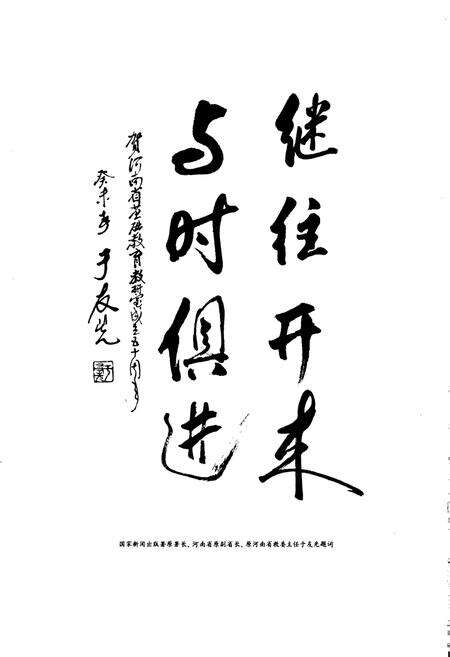 继往开来
与时俱进
贺河南省基础教育教研室成立五十周年
癸未冬 于友先
国家新闻出版署原署长、河南省原副省长、原河南省教委主任于友先题词